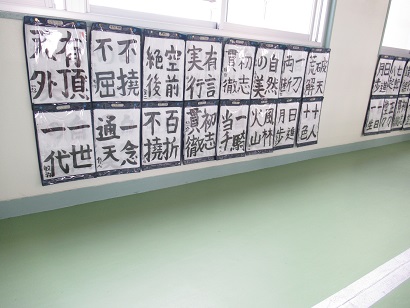 日進
月歩
破天
荒解
一刀
両断
自然
の美
初志
貫徹
有言
実行
空前
絶後
不撓
不屈
有頂
天外
十人
十色
日進
月歩
風林
火山
一騎
当千
初志
貫徹
百折
不撓
一念
通天
一世
一代